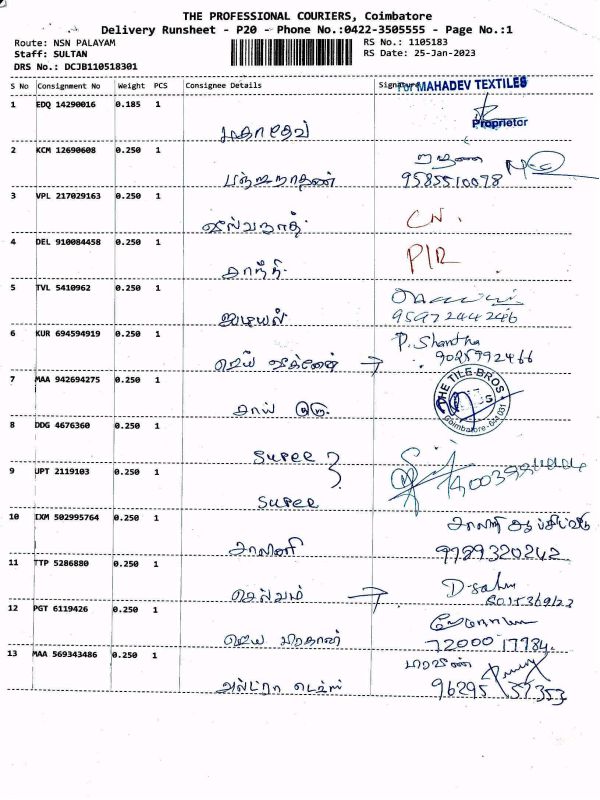 THE PROFESSIONAL COURIERS, Coimbatore
Delivery Runsheet - P20 - Phone No.:0422-3505555 - Page No.:1
Route: NSN PALAYAM
RS No.: 1105183
Staff: SULTAN
RS Date: 25-Jan-2023
DRS No.: DCJB110518301
S No Consignment No Weight PCS Consignee Details Signature
For MAHADEV TEXTILES
1 EDQ 14290016 0.185 1
Proprietor
மகாதேவ்
2 KCM 12690608 0.250 1
9585510078
3 VPL 217029163 0.250 1
CN.
4 DEL 910084458 0.250 1
P/R
காந்தி
5 TVL 5410962 0.250 1
9597244246
6 KUR 694594919 0.250 1
P. Shantha
9025992466
ஜெய் விக்னேஷ் →
7 MAA 942694275 0.250 1
THE TILE BROS
Coimbatore-641 031
சாய் குரு
8 DDG 4676360 0.250 1
Super
9 UPT 2119103 0.250 1
Super
10 IXM 502995764 0.250 1
சாலினி
9789320242
11 TTP 5286880 0.250 1
செல்வம் →
12 PGT 6119426 0.250 1
ஜெய பிரகாஷ்
7200017984.
13 MAA 569343486 0.250 1
பிரவீண்
அல்ட்ரா டெக்ஸ்
96295 57353